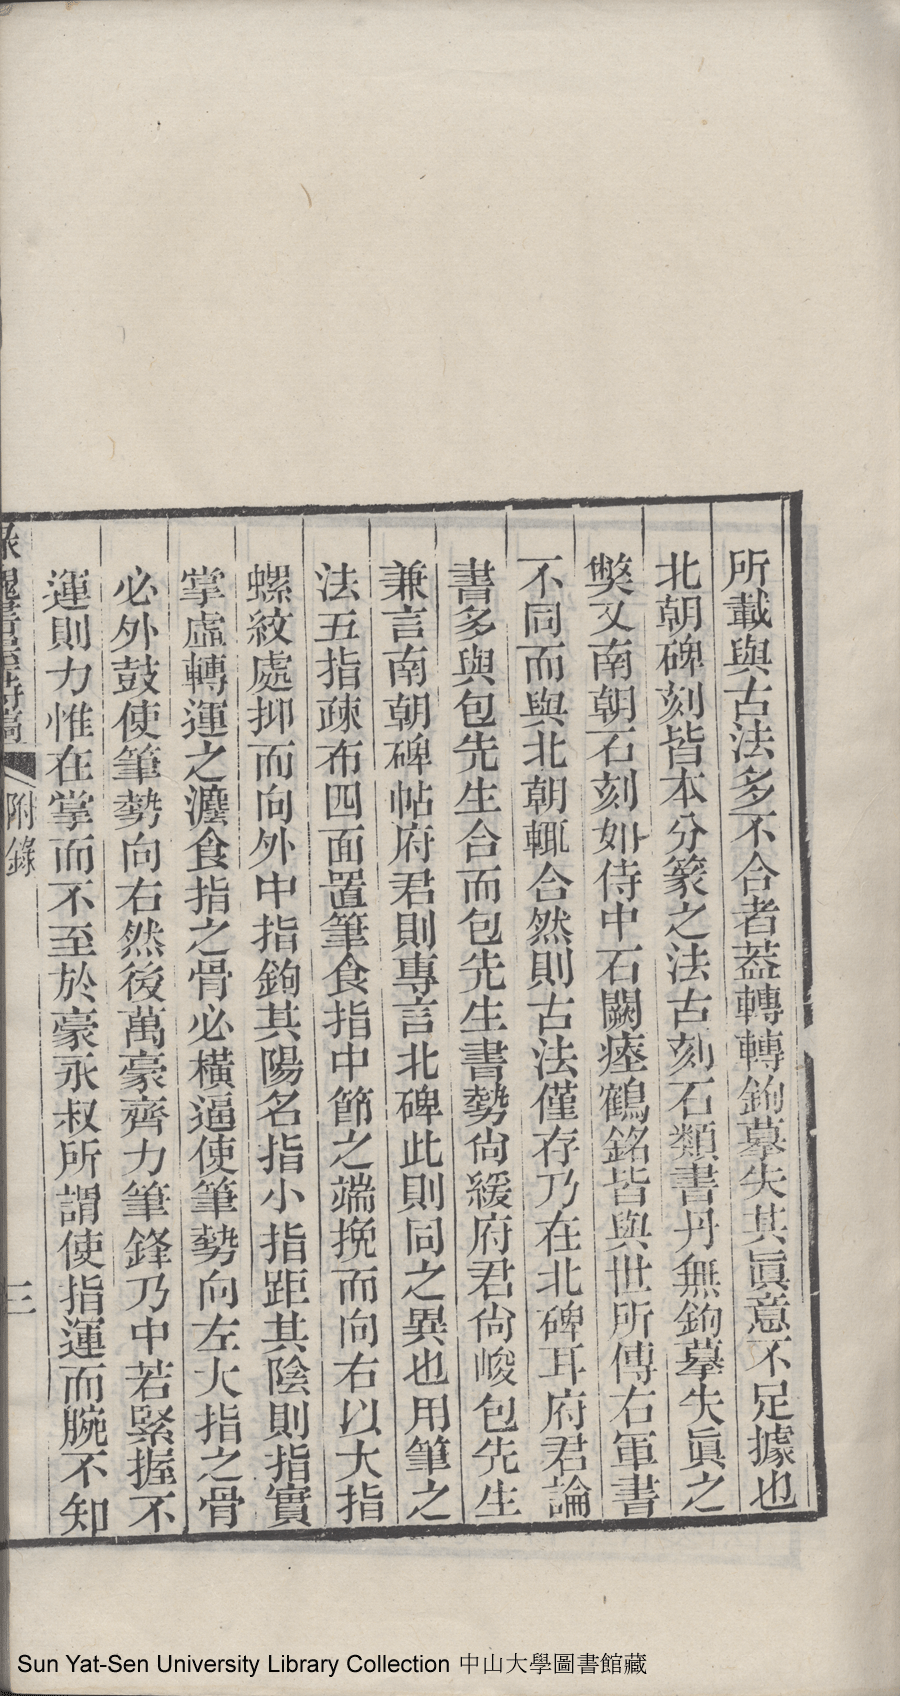 所載與古法多不合者葢轉轉鉤摹失其眞意不足據也
北朝碑刻皆本分篆之法古刻石類書丹無鉤摹失眞之
獘又南朝石刻如侍中石闕瘞鶴銘皆與世所傳右軍書
不同而與北朝輒合然則古法僅存乃在北碑耳府君論
書多與包先生合而包先生書勢尙緩府君尙峻包先生
兼言南朝碑帖府君則專言北碑此則同之異也用筆之
法五指疎布四面置筆食指中節之端挽而向右以大指
螺紋處抑而向外中指鉤其陽名指小指距其陰則指實
掌虛轉運之灋食指之骨必橫逼使筆勢向左大指之骨
必外鼓使筆勢向右然後萬豪齊力筆鋒乃中若緊握不
運則力惟在掌而不至於豪永叔所謂使指運而腕不知
附錄
三
Sun Yat-Sen University Library Collection 中山大學圖書館藏